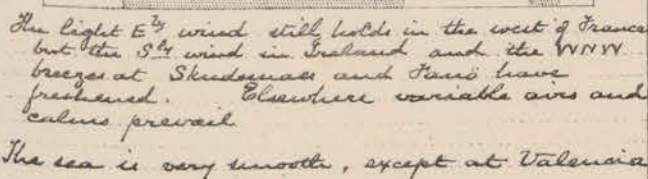 The light E^ly wind still holds in the west of France
but the S^ly wind in Ireland and the WNW
breezes at Skudesnaes and Fanö have
freshened. Elsewhere variable airs and
calms prevail
The sea is very smooth, except at Valencia